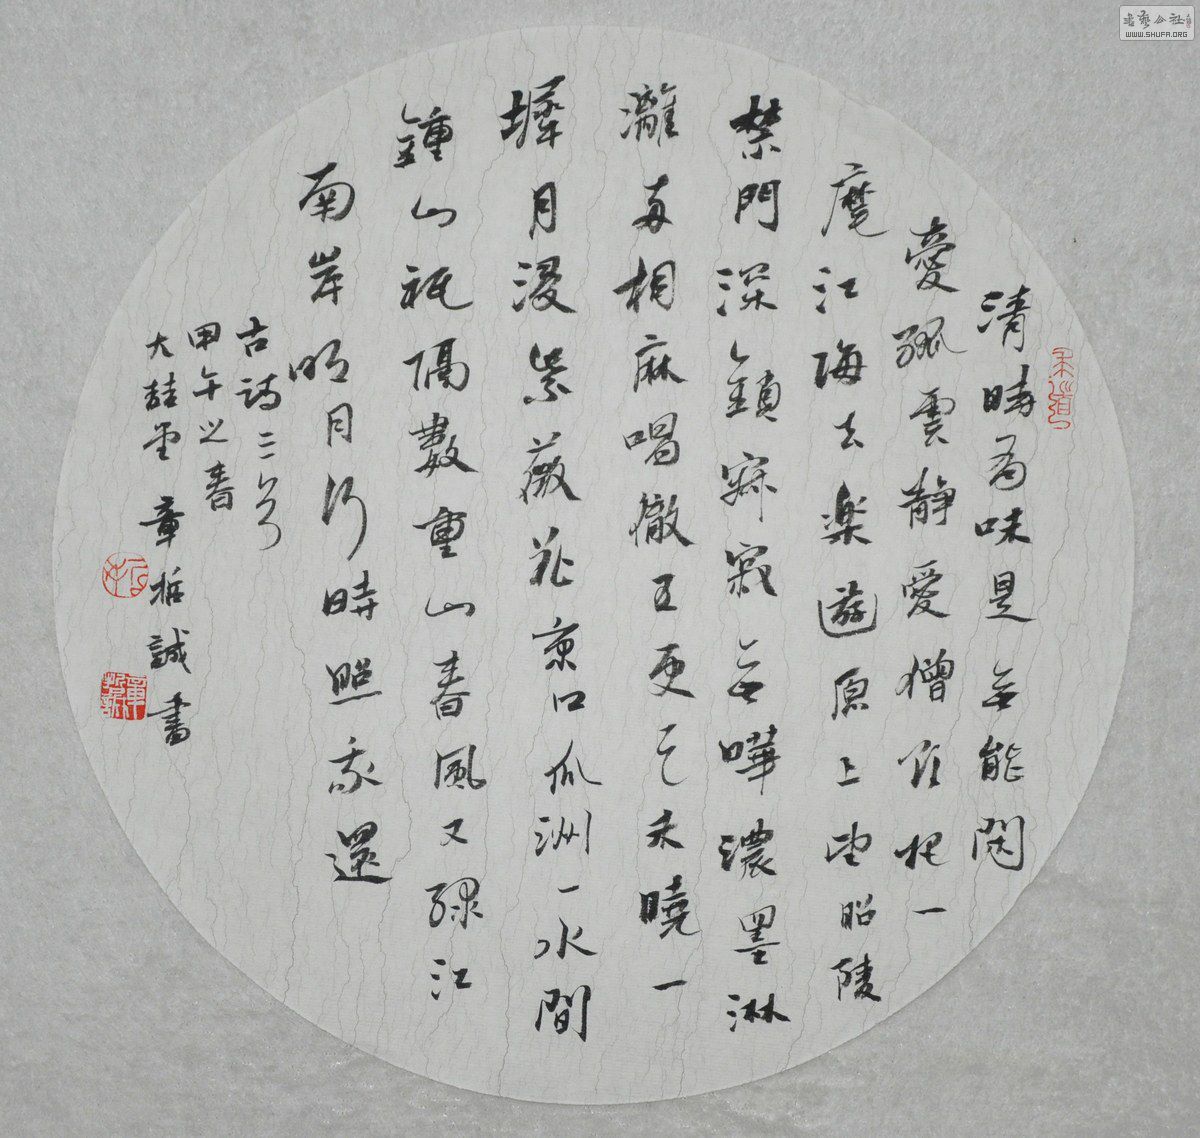 清時有味是無能閑
愛孤雲靜愛僧欲把一
麾江海去樂遊原上望昭陵
禁門深鎖寂寂無嘩濃墨淋
灕兩相麻唱徹五更天未曉一
墀月浸紫薇花京口瓜洲一水間
鍾山祇隔數重山春風又綠江
南岸明月何時照我還
古詩三首
甲午之春
大喆堂章哲誠書
書藝公社
WWW.SHUFA.ORG